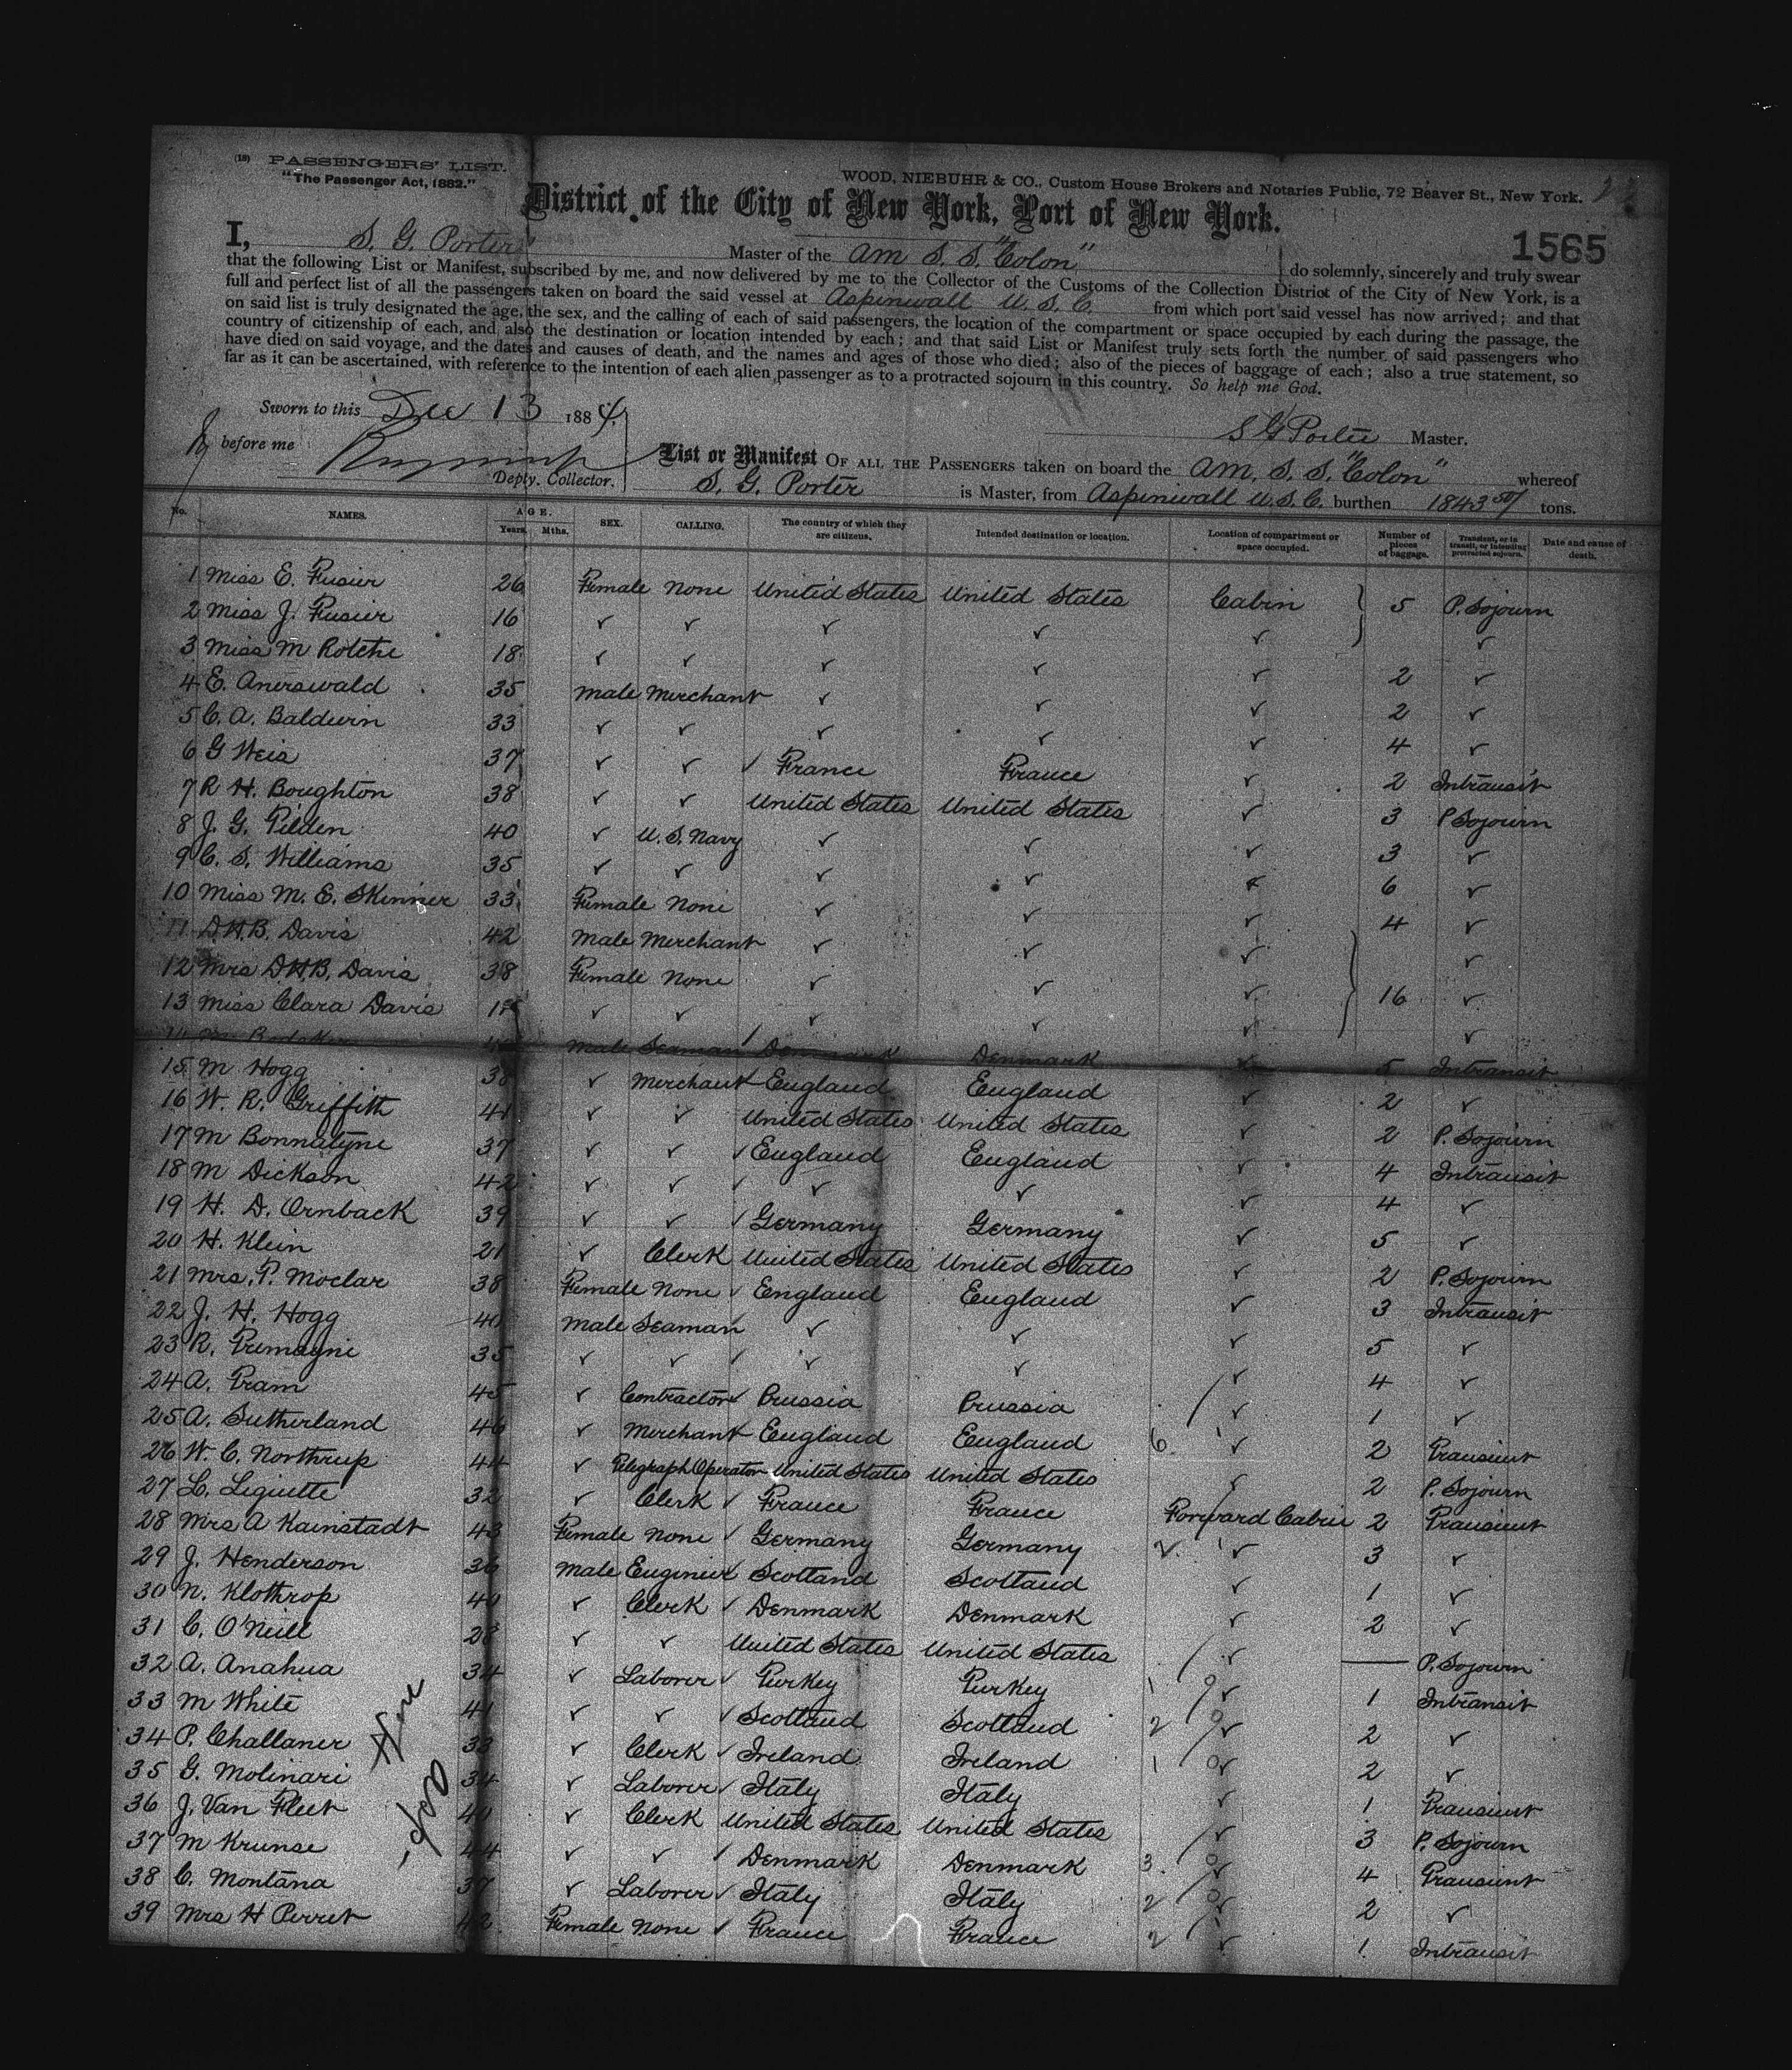 (18) PASSENGERS' LIST.
"The Passenger Act, 1882."
WOOD, NIEBUHR & CO., Custom House Brokers and Notaries Public, 72 Beaver St., New York.
District of the City of New York, Port of New York.
1565
I, S. G. Porter Master of the Am S. S. "Colon" do solemnly, sincerely and truly swear
that the following List or Manifest, subscribed by me, and now delivered by me to the Collector of the Customs of the Collection District of the City of New York, is a
full and perfect list of all the passengers taken on board the said vessel at Aspinwall U. S. C. from which port said vessel has now arrived; and that
on said list is truly designated the age, the sex, and the calling of each of said passengers, the location of the compartment or space occupied by each during the passage, the
country of citizenship of each, and also the destination or location intended by each; and that said List or Manifest truly sets forth the number of said passengers who
have died on said voyage, and the dates and causes of death, and the names and ages of those who died; also of the pieces of baggage of each; also a true statement, so
far as it can be ascertained, with reference to the intention of each alien passenger as to a protracted sojourn in this country. So help me God.
Sworn to this Dec 13 1884.
S G Porter Master.
before me
Depty. Collector.
List or Manifest OF ALL THE PASSENGERS taken on board the Am. S. S. "Colon" whereof
S. G. Porter is Master, from Aspinwall U.S.C. burthen 1843 50/ tons.
No. NAMES. AGE. Years. Mths. SEX. CALLING. The country of which they are citizens. Intended destination or location. Location of compartment or space occupied. Number of pieces of baggage. Transient, or in transit, or intending protracted sojourn. Date and cause of death.
1 Miss E. Fusier 26 Female None United States United States Cabin 5 P. Sojourn
2 Miss J. Fusier 16 ✓ ✓ ✓ ✓ ✓ ✓
3 Miss M Rotche 18 ✓ ✓ ✓ ✓ ✓ 2 ✓
4 E. Anerswald 35 Male Merchant ✓ ✓ ✓ 2 ✓
5 C. A. Baldwin 33 ✓ ✓ ✓ ✓ ✓ 4 ✓
6 G Weis 37 ✓ ✓ ✓ France France ✓ 2 Intransit
7 R H. Boughton 38 ✓ ✓ United States United States ✓ 3 P Sojourn
8 J. G. Tilden 40 ✓ U. S. Navy ✓ ✓ ✓ 3 ✓
9 C. S. Williams 35 ✓ ✓ ✓ ✓ ✓ 6 ✓
10 Miss M. E. Skinner 33 Female None ✓ ✓ ✓ 4 ✓
11 D.H.B. Davis 42 Male Merchant ✓ ✓ ✓ ✓
12 Mrs D.H.B. Davis 38 Female None ✓ ✓ ✓ 16 ✓
13 Miss Clara Davis ✓ ✓ ✓ ✓ ✓ ✓
14 Male Seaman Denmark Denmark ✓ 5 Intransit
15 M Hogg 38 ✓ Merchant England England ✓ 2 ✓
16 W. R. Griffith 41 ✓ ✓ United States United States ✓ 2 P. Sojourn
17 M Bonnatyne 37 ✓ ✓ ✓ England England ✓ 4 Intransit
18 M Dickson 42 ✓ ✓ ✓ ✓ ✓ ✓ 4 ✓
19 H. D. Ornback 39 ✓ ✓ ✓ Germany Germany ✓ 5 ✓
20 H. Klein 21 ✓ Clerk United States United States ✓ 2 P. Sojourn
21 Mrs. P. Moclar 38 Female None ✓ England England ✓ 3 Intransit
22 J. H. Hogg 40 Male Seaman ✓ ✓ ✓ 5 ✓
23 R. Tremayne 35 ✓ ✓ ✓ ✓ ✓ ✓ 4 ✓
24 A. Tram 45 ✓ Contractor ✓ Prussia Prussia ✓ 1 ✓
25 A. Sutherland 46 ✓ Merchant England England 6. ✓ 2 Transient
26 W. C. Northrup 44 ✓ Telegraph Operator United States United States ✓ 2 P. Sojourn
27 L. Liguette 32 ✓ Clerk ✓ France France Forward Cabin 2 Transient
28 Mrs A Kainstadt 43 Female None ✓ Germany Germany 2. ✓ 3 ✓
29 J. Henderson 36 Male Engineer ✓ Scotland Scotland ✓ 1 ✓
30 N. Klothrop 40 ✓ Clerk ✓ Denmark Denmark ✓ 2 ✓
31 C. O'Neill 28 ✓ ✓ United States United States ✓ — P. Sojourn
32 A. Anahua 34 ✓ Laborer ✓ Turkey Turkey 1 ✓ 1 Intransit
33 M White 41 ✓ ✓ ✓ Scotland Scotland 2 ✓ 2 ✓
34 P. Challaner 33 ✓ Clerk ✓ Ireland Ireland 1 ✓ 2 ✓
35 G. Molinari 34 ✓ Laborer ✓ Italy Italy ✓ 1 Transient
36 J. Van Fleet 40 ✓ Clerk United States United States ✓ 3 P. Sojourn
37 M Krunse 44 ✓ ✓ ✓ Denmark Denmark 3. ✓ 4 Transient
38 C. Montana 37 ✓ Laborer ✓ Italy Italy 2 ✓ 2 ✓
39 Mrs H Perret 42 Female None ✓ France France 2 ✓ 1 Intransit